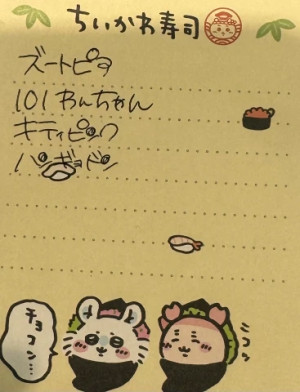 ちいかわ寿司
ズートピア
101わんちゃん
キティピック
ハンギョドン
チョコン…
ニコッ